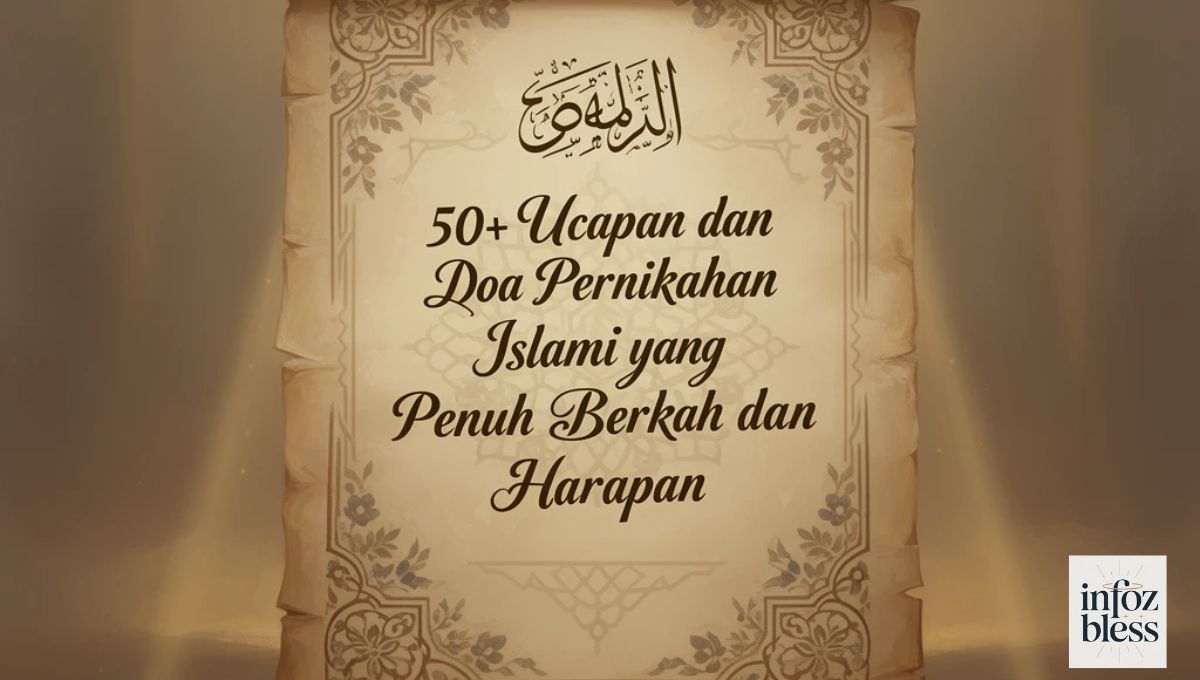 50+ Ucapan dan
Doa Pernikahan
Islami yang
Penuh Berkah dan
Harapan
infoz
bless